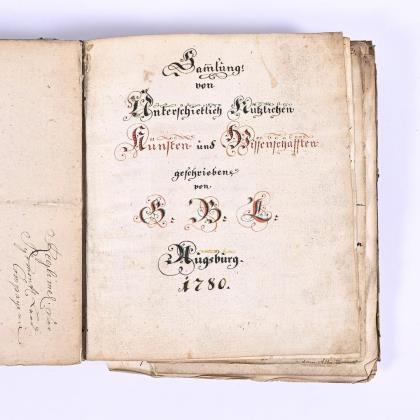 Sam̄lung
von
Unterschietlich Nützlichen
Künsten und Wissenschafften
geschrieben
von
S. B. L.
Augsburg.
1780.